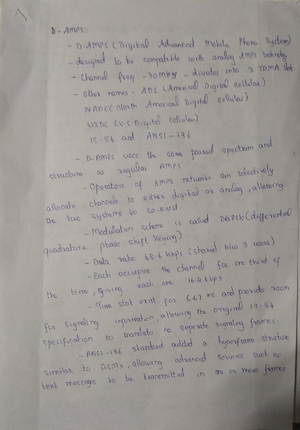 D-AMPS:
- D-AMPS (Digital Advanced Mobile Phone System)
- designed to be compatible with analog AMPS
- Channel freq - 30MHz - divides into 3 TDMA slot
- Other names - ADC (American Digital Cellular)
NADC (North American Digital Cellular)
USDC (U.S Digital Cellular)
IS-54 and ANSI-136
- D-AMPS uses the same paired spectrum and
structure as regular AMPS
- Operators of AMPS networks can selectively
allocate channels to either digital or analog, allowing
the two systems to co-exist
- Modulation scheme is called DQPSK (differential
quadrature phase shift keying)
- Data rate 48.6 kbps (shared b/w 3 users)
- Each occupies the channel for one third of
the time, giving each one 16.2 kbps
- Time slot exist for 6.67 ms and provide room
for signaling information, allowing the original IS-54
specification to mandate no separate signaling frames
- ANSI-136 standard added a hyperframe structure
similar to GSM's, allowing advanced services such as
text messages to be transmitted in one or more frames